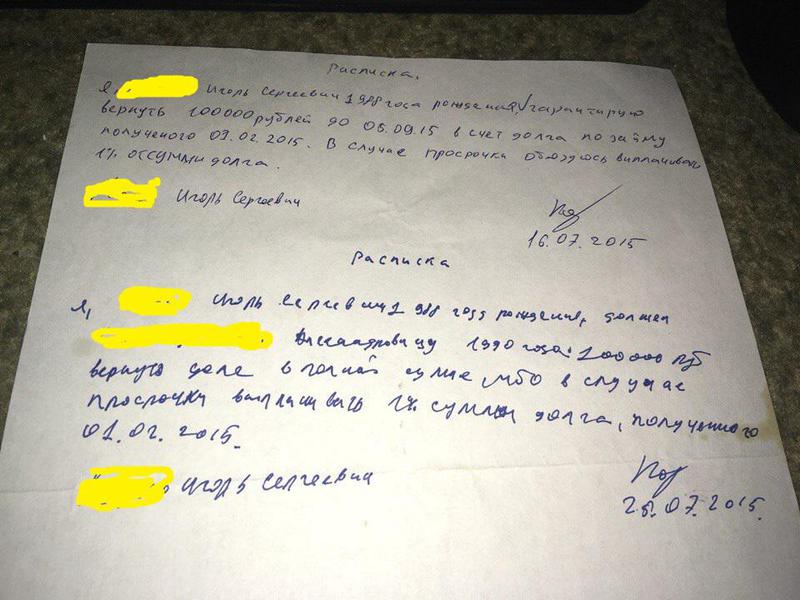 Расписка.
Я, Игорь Сергеевич 1988 года рождения, гарантирую
вернуть 100000 рублей до 06.09.15 в счет долга по займу
полученого 09.02.2015. В случае просрочки обязуюсь виплачивать
1% от суммы долга.
Игорь Сергеевич
16.07.2015
Расписка
Я, Игорь Сергеевич 1988 года рождения, должен
Александровичу 1990 года. 100000 руб
вернуть в полной сумме либо в случае
просрочки виплачивать 1% суммы долга, полученного
01.02.2015.
Игорь Сергеевич
25.07.2015.